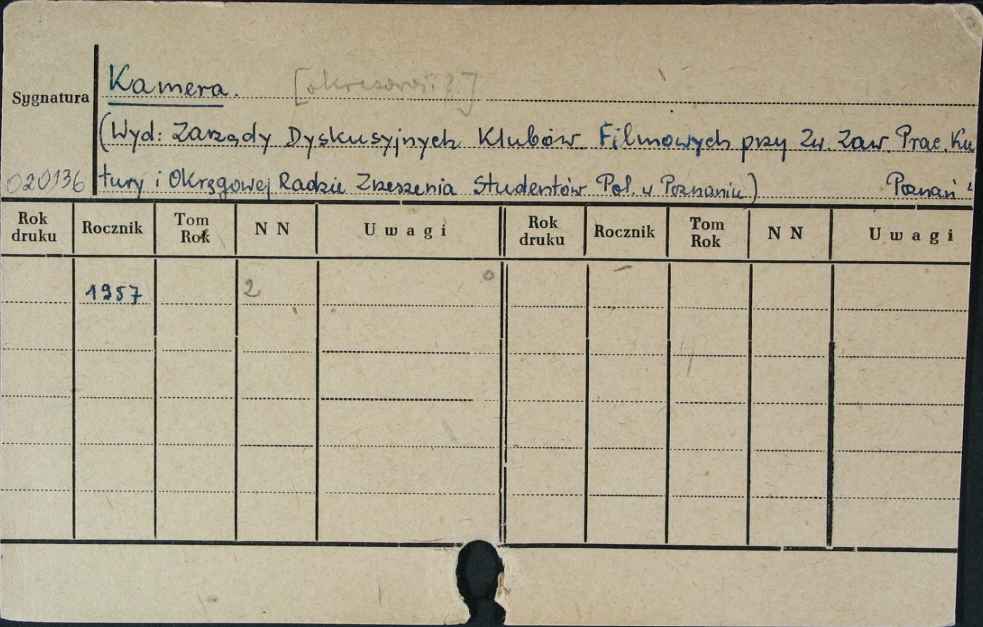 Kamera. [okresowość?]
Sygnatura
(Wyd: Zarządy Dyskusyjnych Klubów Filmowych przy Zw. Zaw. Prac. Ku
020136 tury i Okręgowej Radzie Zrzeszenia Studentów Pol. w Poznaniu) Poznań
Rok druku Rocznik Tom Rok N N Uwagi Rok druku Rocznik Tom Rok N N Uwagi
1957 2